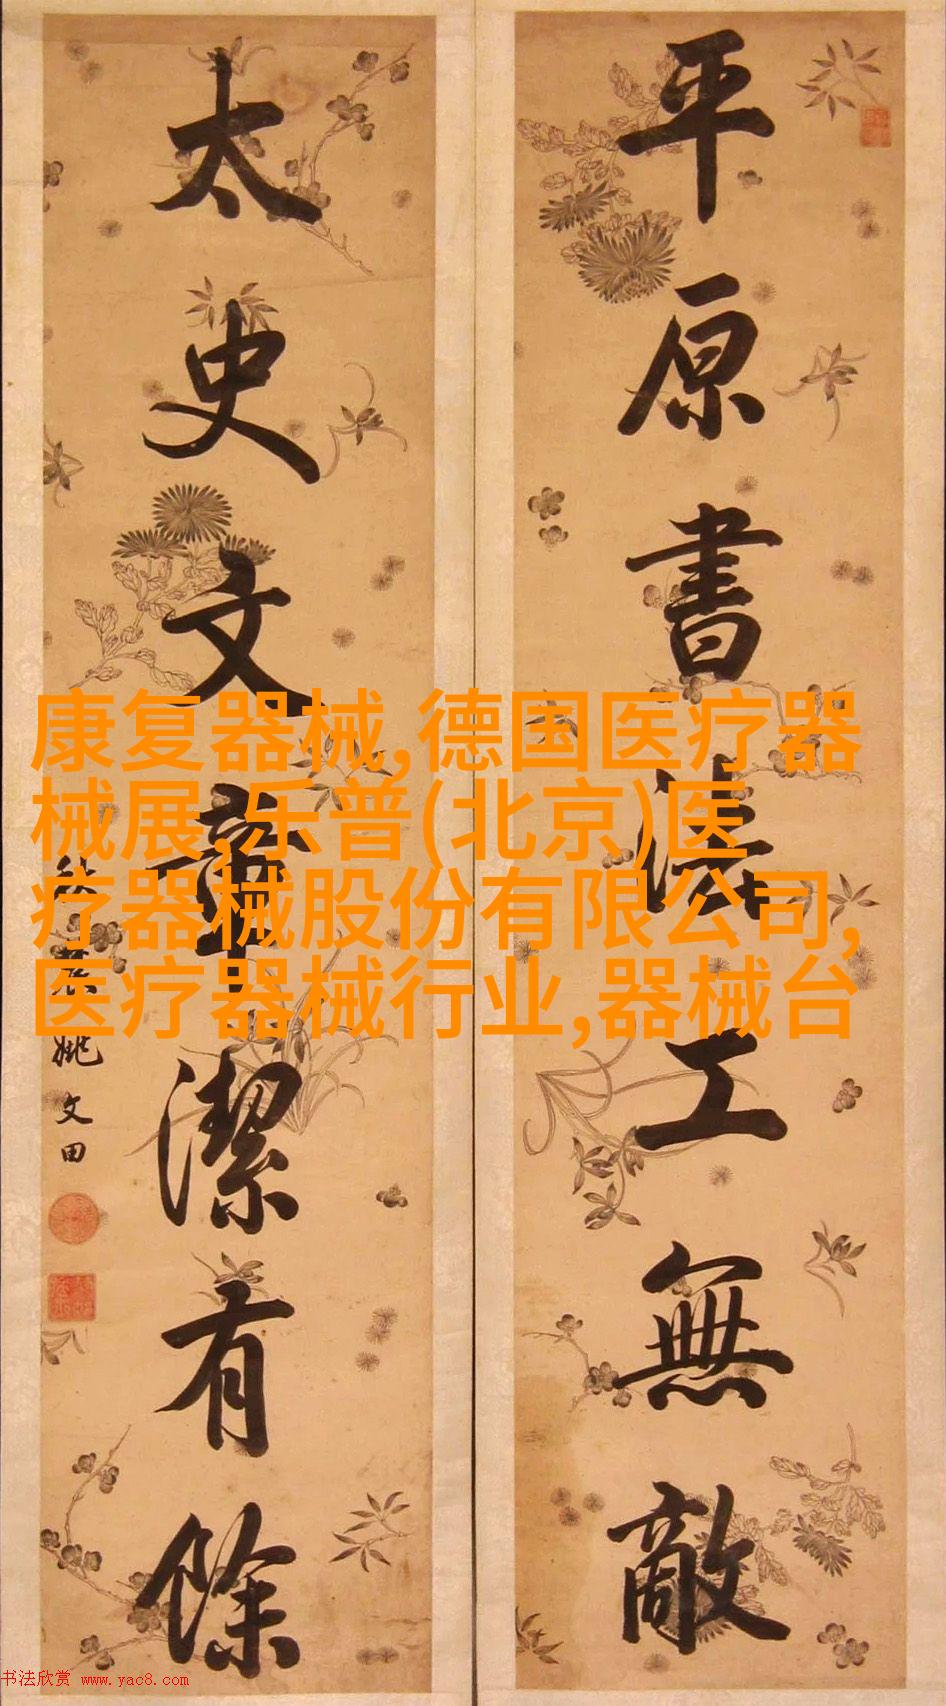 平原書法工無敵
太史文章潔有餘
姚文田
康复器械,德国医疗器
械展,乐普(北京)医
疗器械股份有限公司,
医疗器械行业,器械台
书法欣赏 www.yac8.com